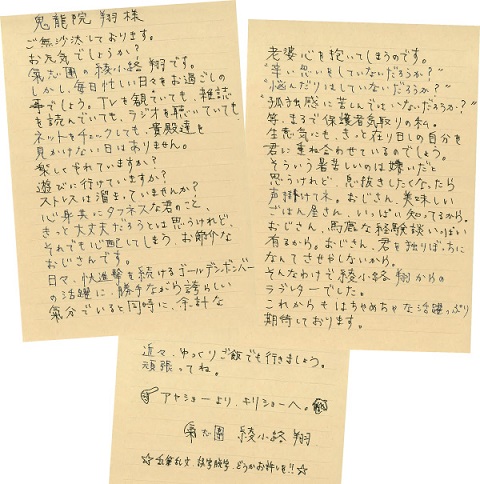 鬼龍院 翔 様
ご無沙汰しております。
お元気でしょうか？
氣志團の綾小路 翔です。
しかし、毎日忙しい日々をお過ごしの
事でしょう。TVを観ていても、雑誌
を読んでいても、ラジオを聴いていても
ネットをチェックしても、貴殿達を
見かけない日はありません。
楽しくやれていますか？
遊びに行けていますか？
ストレスは溜まっていませんか？
心身共にタフネスな君のこと、
きっと大丈夫だろうとは思うけれど、
それでも心配してしまう、お節介な
おじさんです。
日々、快進撃を続けるゴールデンボンバー
の活躍に、勝手ながら誇らしい
気分でいると同時に、余計な
老婆心を抱いてしまうのです。
“辛い思いをしていないだろうか？”
“悩んだりはしていないだろうか？”
“孤独感に苦んではいないだろうか？”
等、まるで保護者気取りの私。
生意気にも、きっと在りし日の自分を
君に重ね合わせているのでしょう。
そういう暑苦しいのは嫌いだと
思うけれど、息抜きしたくなったら
声掛けてネ。おじさん、美味しい
ごはん屋さん、いっぱい知ってるから。
おじさん、馬鹿な経験談いっぱい
有るから。おじさん、君を独りぼっちに
なんてさせやしないから。
そんなわけで綾小路 翔からの
ラブレターでした。
これからもはちゃめちゃな活躍っぷり
期待しております。
近々、ゆっくりご飯でも行きましょう。
頑張ってね。
アヤショーより、キリショーへ。
氣志團 綾小路 翔
☆乱筆乱文、誤字脱字、どうかお許しを!!☆